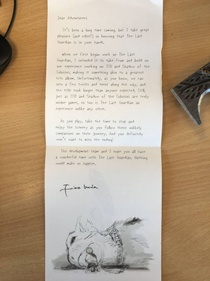 Dear Adventurers
It's been a long time coming, but I take great
pleasure (and relief) in knowing that The Last
Guardian is in your hands.
When we first began work on The Last
Guardian, I intended it to take from and build on
my experience working on ICO and Shadow of the
Colossus, making it something akin to a greatest
hits album. Unfortunately, as you know, we ran
into a few twists and turns along the way, and
the title took longer than anyone expected. Still,
just as ICO and Shadow of the Colossus are truly
unique games, so too is The Last Guardian an
experience unlike any other.
As you play, take the time to stop and
enjoy the scenery as you follow these unlikely
companions on their journey, but you definitely
won't want to miss the ending!
The development team and I hope you all have
a wonderful time with The Last Guardian. Nothing
could make us happier.